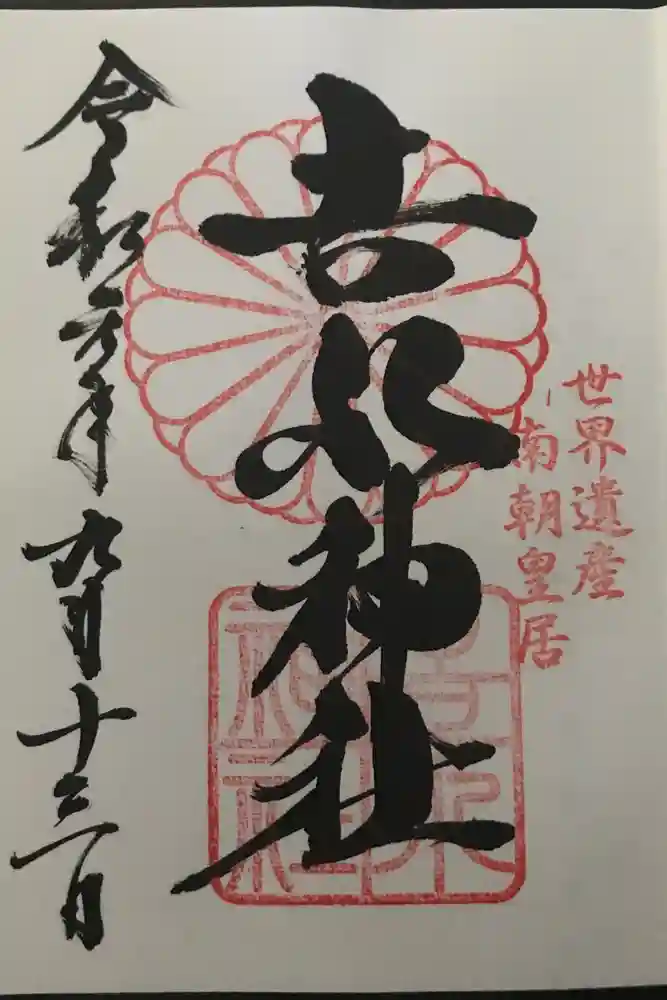 世界遺産
南朝皇居
吉水神社
吉水神社
令和元年九月十三日